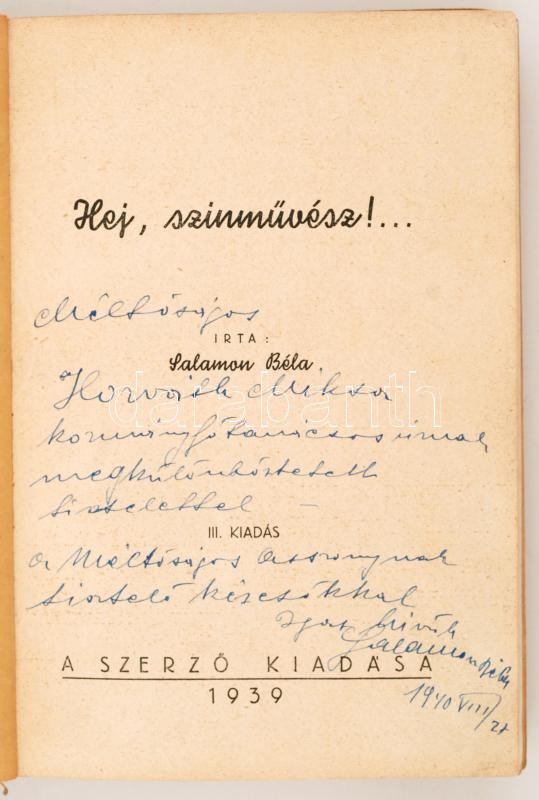 Hej, szinművész!...
Méltóságos
IRTA:
Salamon Béla
Horváth Miksa
kormányfőtanácsos urnak
megkülönböztetett
tisztelettel –
III. KIADÁS
a Méltóságos Asszonynak
tisztelő kézcsókkal
igaz hívük
Salamon Béla
A SZERZŐ KIADÁSA
1939
1940 VIII/21
darabanth